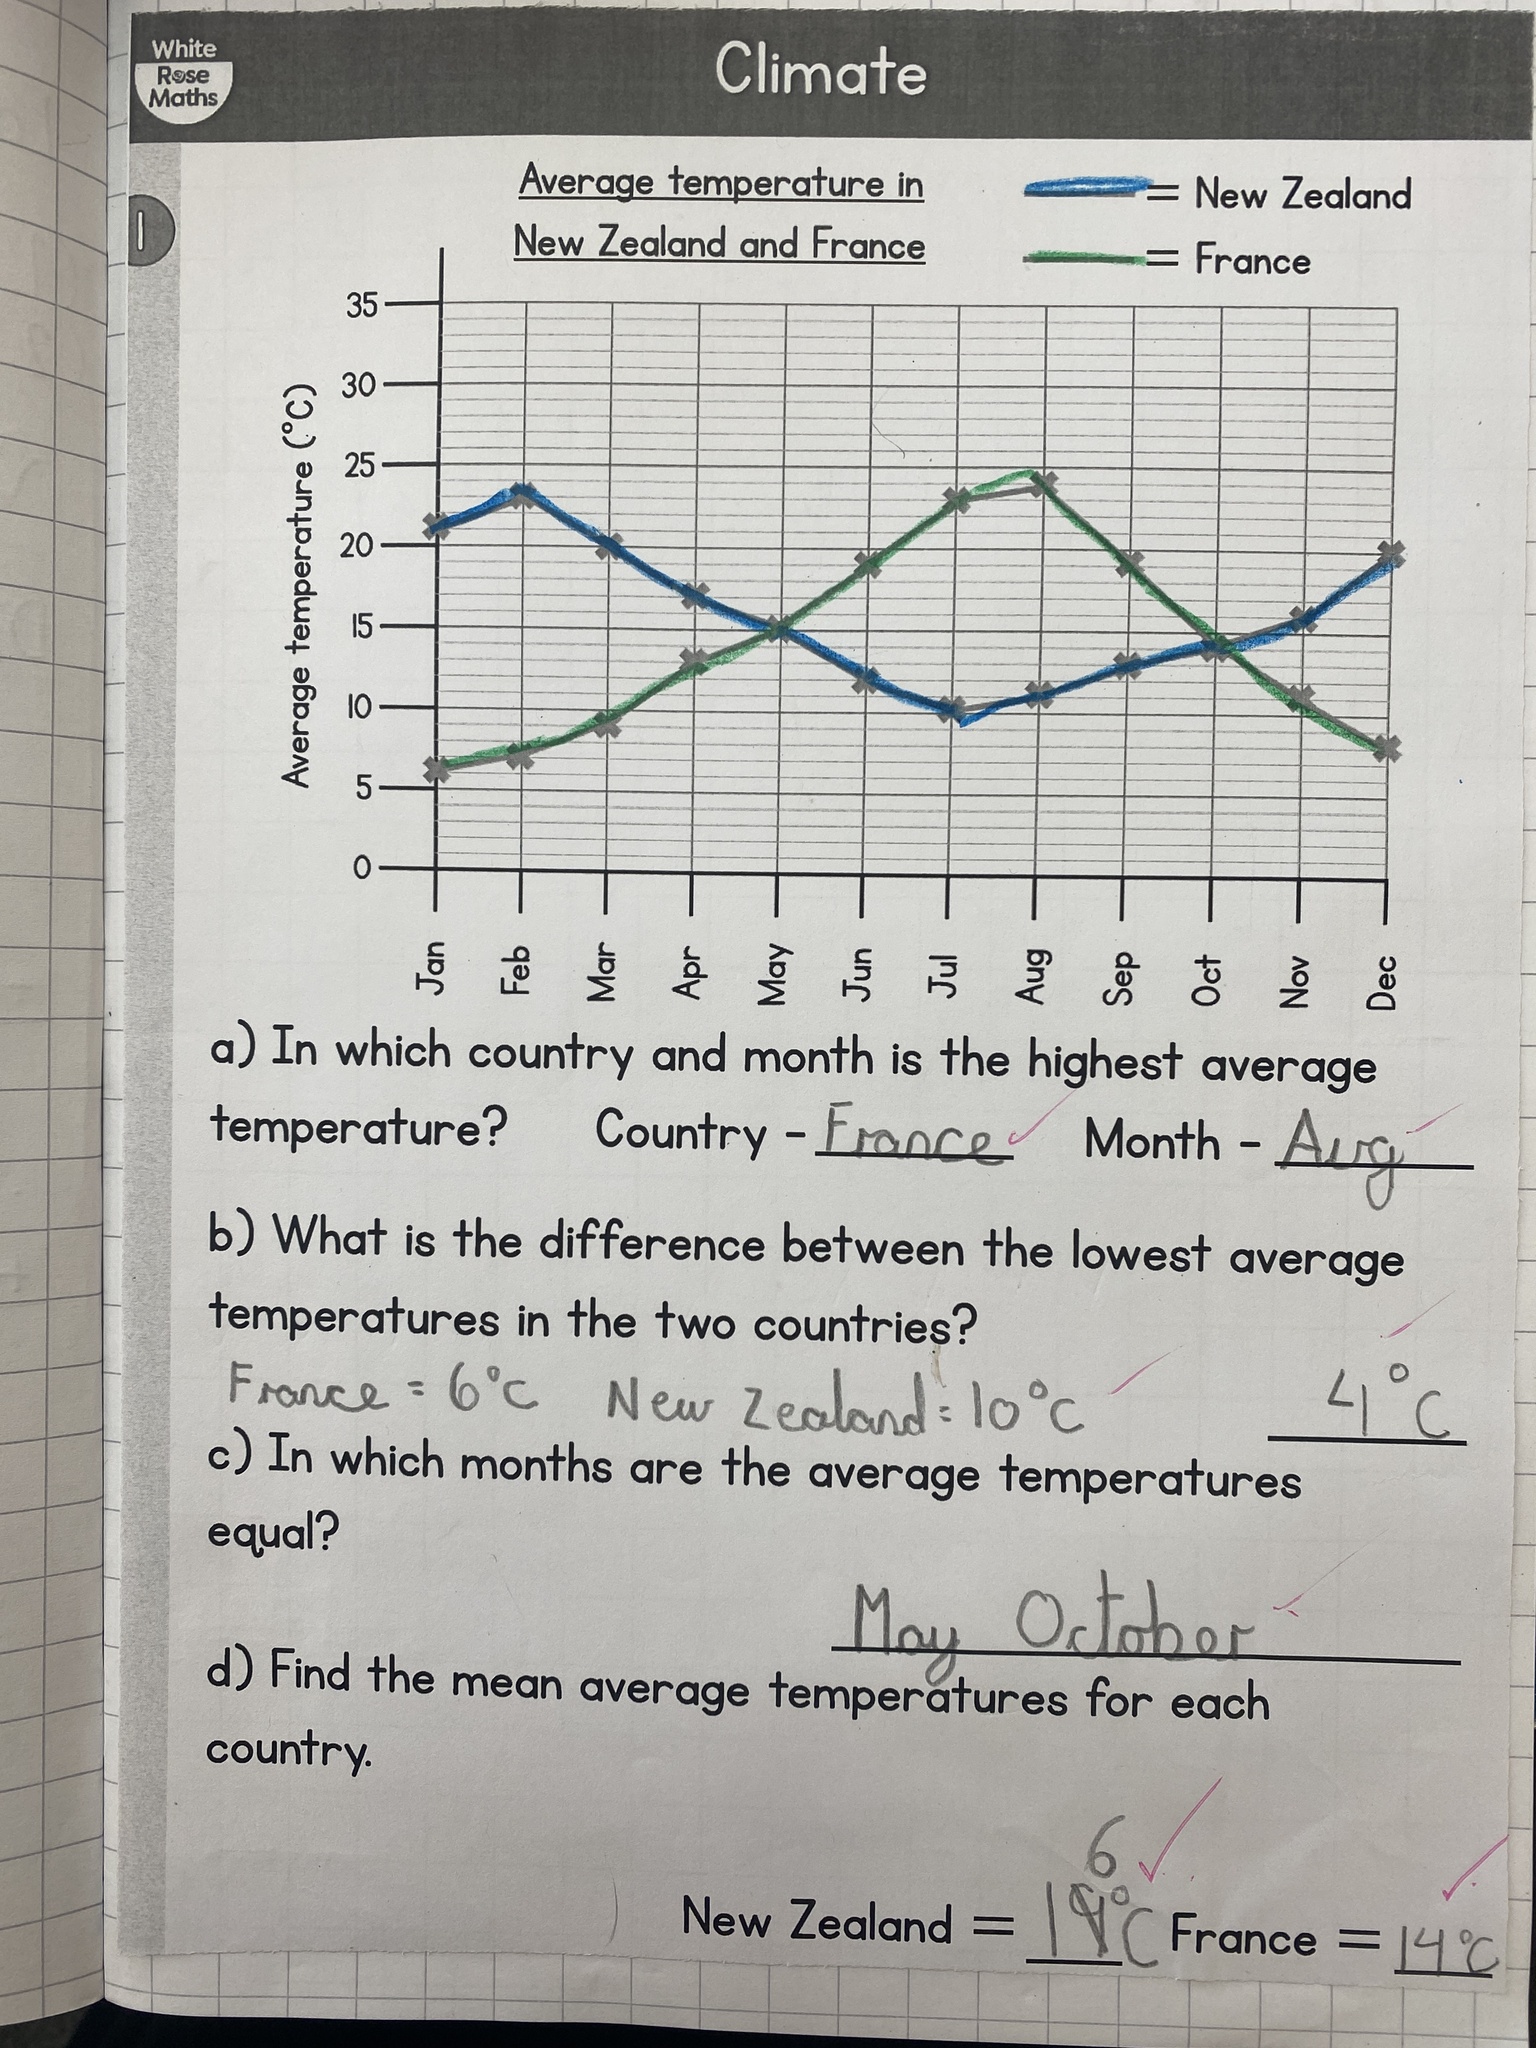 White
Rose
Maths
Climate
1
Average temperature in
New Zealand and France
= New Zealand
= France
Average temperature (°C)
35
30
25
20
15
10
5
0
Jan Feb Mar Apr May Jun Jul Aug Sep Oct Nov Dec
a) In which country and month is the highest average
temperature? Country - France Month - Aug
b) What is the difference between the lowest average
temperatures in the two countries?
France = 6°C New Zealand = 10°C 4°C
c) In which months are the average temperatures
equal?
May October
d) Find the mean average temperatures for each
country.
6
New Zealand = 1°C France = 14°C